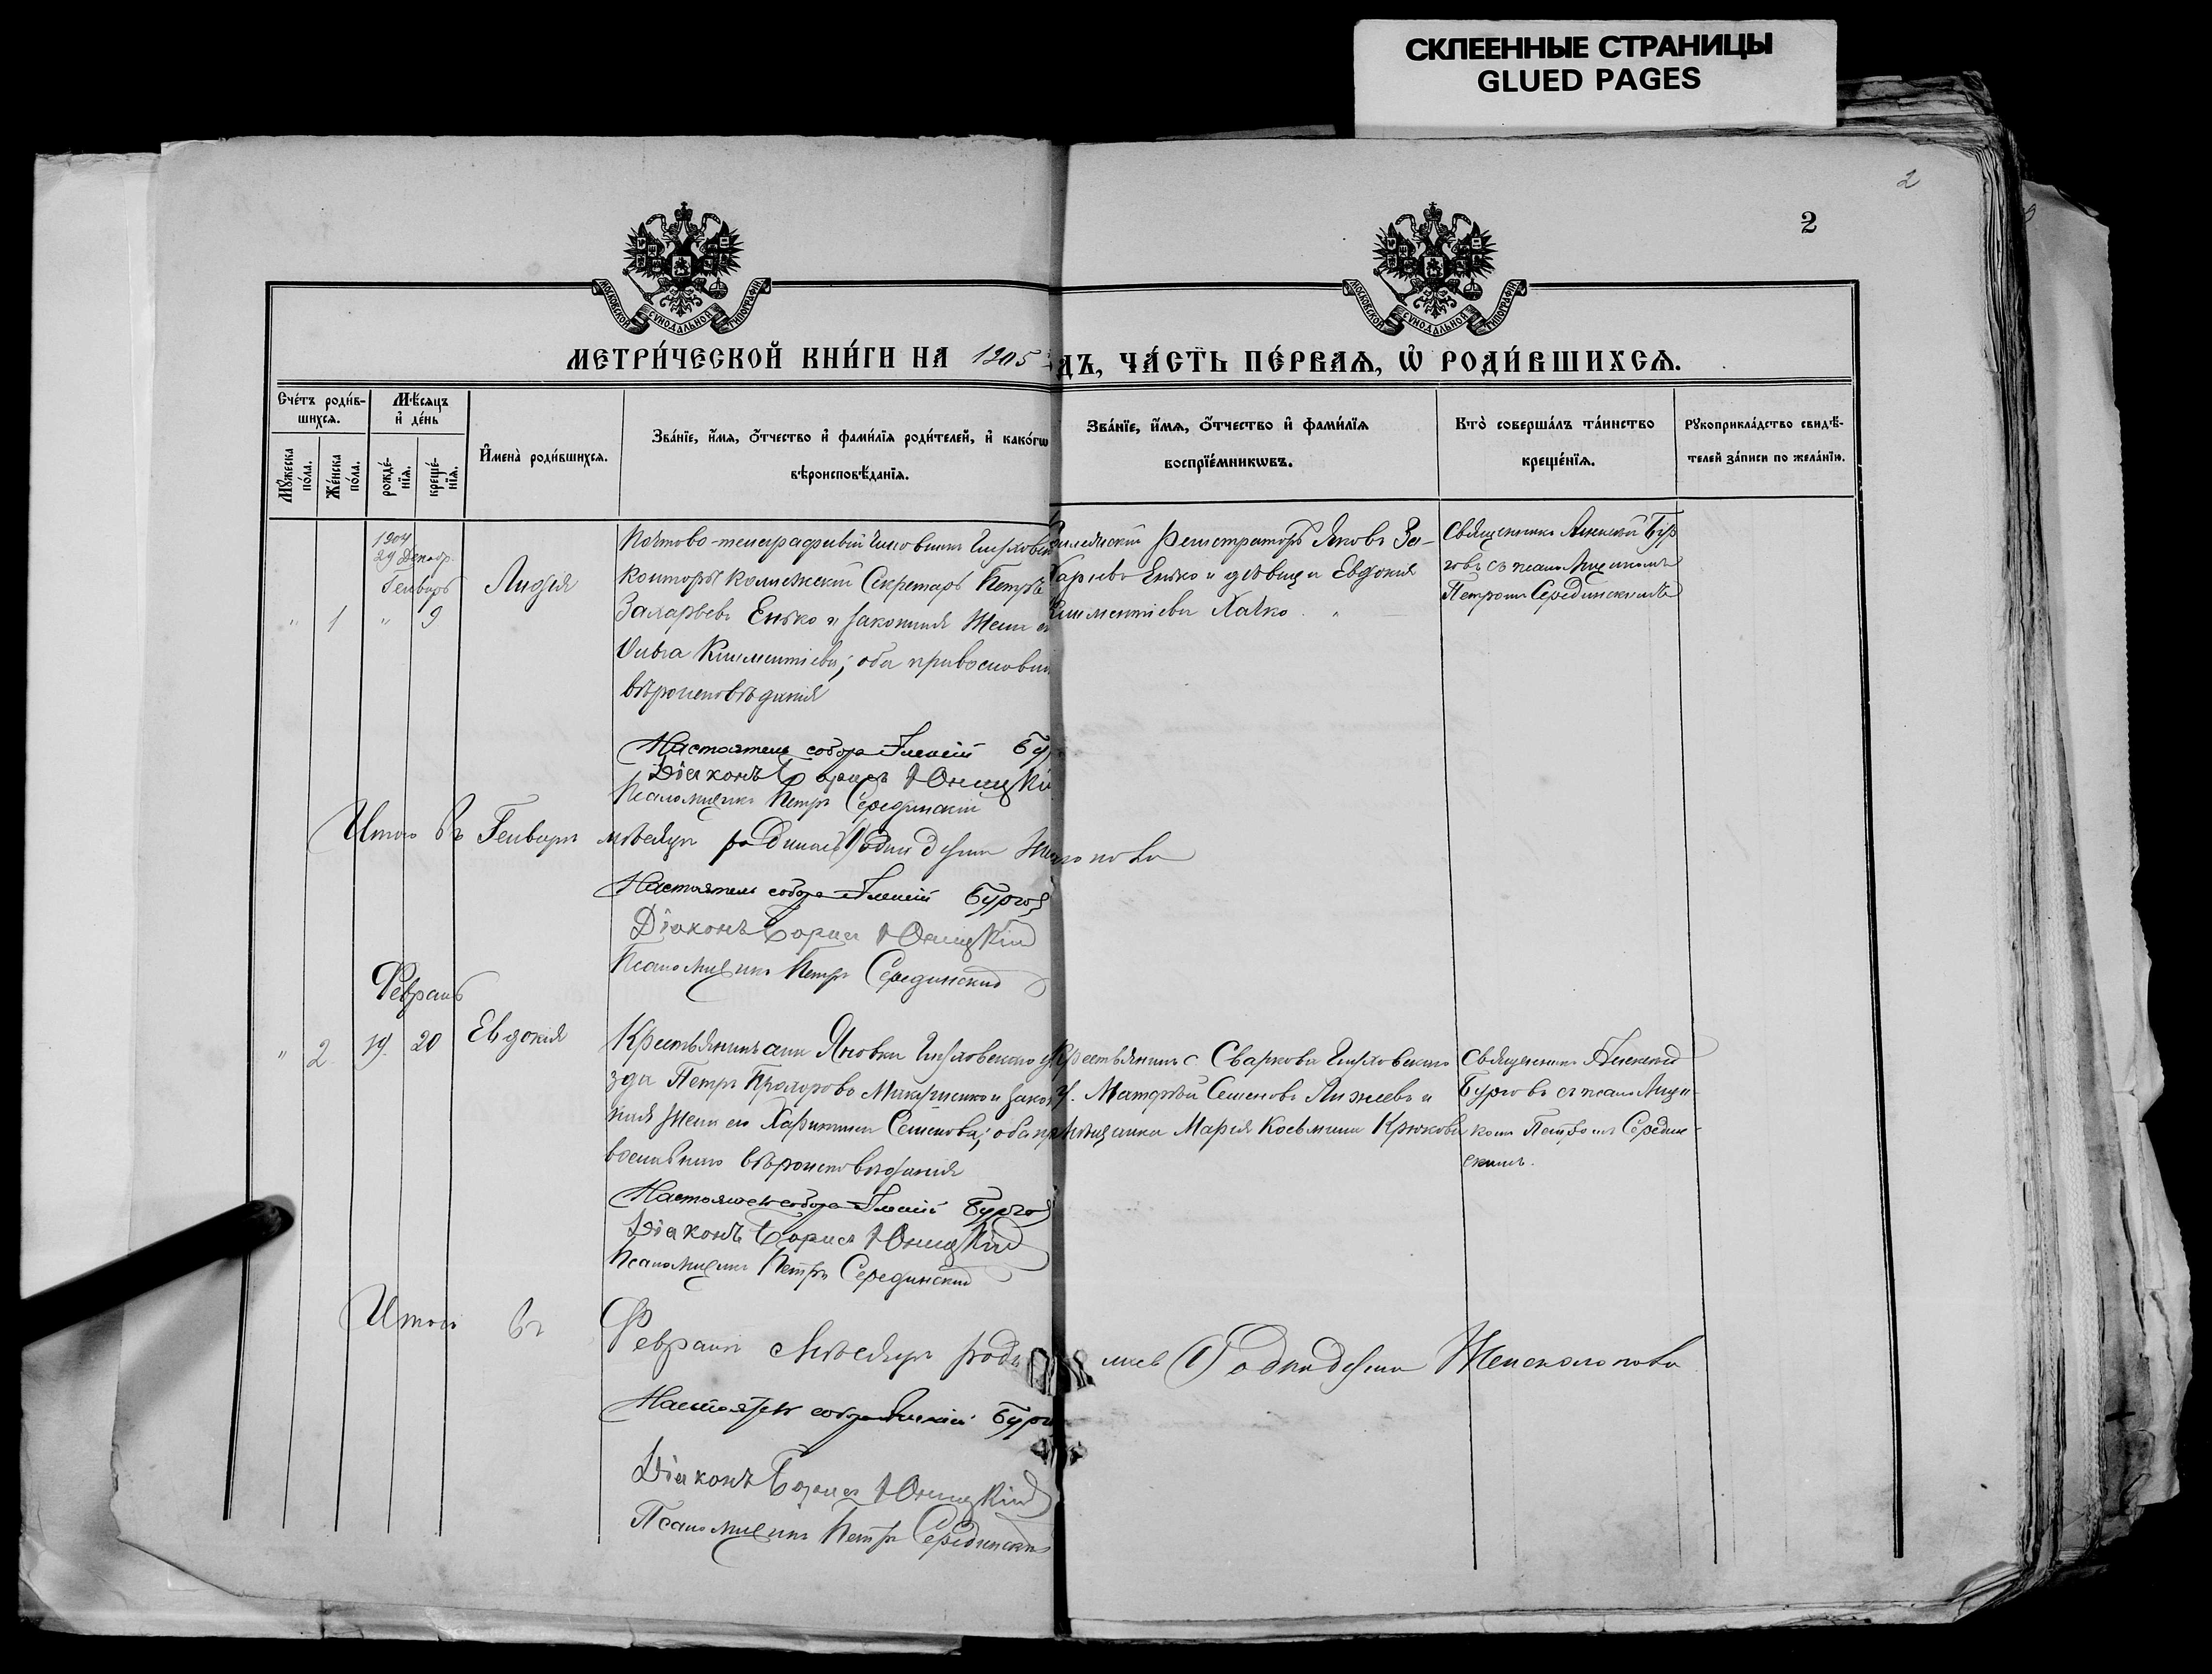 СКЛЕЕННЫЕ СТРАНИЦЫ
GLUED PAGES
2
2
МОСКОВСКОЙ СѴНОДАЛЬНОЙ ТИПОГРАФІИ
МОСКОВСКОЙ СѴНОДАЛЬНОЙ ТИПОГРАФІИ
МЕТРИ́ЧЕСКОЙ КНИ́ГИ НА 1905
ДЪ, ЧА́СТЬ ПЕ́РВАѦ, Ѡ҆ РОДИ́ВШИХСѦ.
Сче́тъ роди́в-
шихсѧ.
Мꙋ́жеска
по́ла.
Же́нска
по́ла.
Мѣ́сѧцъ
и҆ де́нь
рожде́-
нїѧ.
креще́-
нїѧ.
И҆мена̀ роди́вшихсѧ.
Зва́нїе, и҆́мѧ, ѻ҆́тчество и҆ фами́лїѧ роди́телей, и҆ како́гѡ
вѣроисповѣ́данїѧ.
Зва́нїе, и҆́мѧ, ѻ҆́тчество и҆ фами́лїѧ
воспрїе́мникѡвъ.
Кто̀ соверша́лъ та́инство
креще́нїѧ.
Рꙋкоприкла́дство свидѣ́-
телей за́писи по жела́нїю.
1904
29 Декабр.
Генварь
" 1 " 9
Лидія
Почтово-телеграфный чиновникъ Глуховской
конторы Коллежскій Секретарь Петръ
Захарьевъ Енько и законная жена его
Ольга Климентіева; оба православнаго
вѣроисповѣданія
Регистраторъ Яковъ За-
харіевъ Енько и дѣвица Евдокія
Климентіева Хачко
Священникъ Алексѣй Бур
говъ съ псаломщикомъ
Петромъ Серединскимъ
Настоятель собора Алексій Бур
Діаконъ Борисъ Юницкій
Псаломщикъ Петръ Серединскій
Итого въ Генварѣ мѣсяцѣ родилось (1) одно дитя женскаго пола
Настоятель собора Алексій Бургов
Діаконъ Борисъ Юницкій
Псаломщикъ Петръ Серединскій
Февраль
" 2 19 20
Евдокія
Крестьянинъ Яновки Глуховскаго у
зда Петръ Прохоровъ Макушенко и закон
ная жена его Харитина Семенова; оба пра
вославнаго вѣроисповѣданія
Крестьянинъ с. Сваркова Глуховскаго
у. Матѳей Семеновъ и
мѣщанка Марія Косьмина Крюкова
Священникъ Алексѣй
Бурговъ съ псаломщи-
комъ Петромъ Середин-
скимъ.
Настоятель собора Алексій Бургов
Діаконъ Борисъ Юницкій
Псаломщикъ Петръ Серединскій
Итого въ Февралѣ мѣсяцѣ роди лось (1) одно дитя Женскаго пола
Настоятель собора Алексій Бург
Діаконъ Борисъ Юницкій
Псаломщикъ Петръ Серединскій